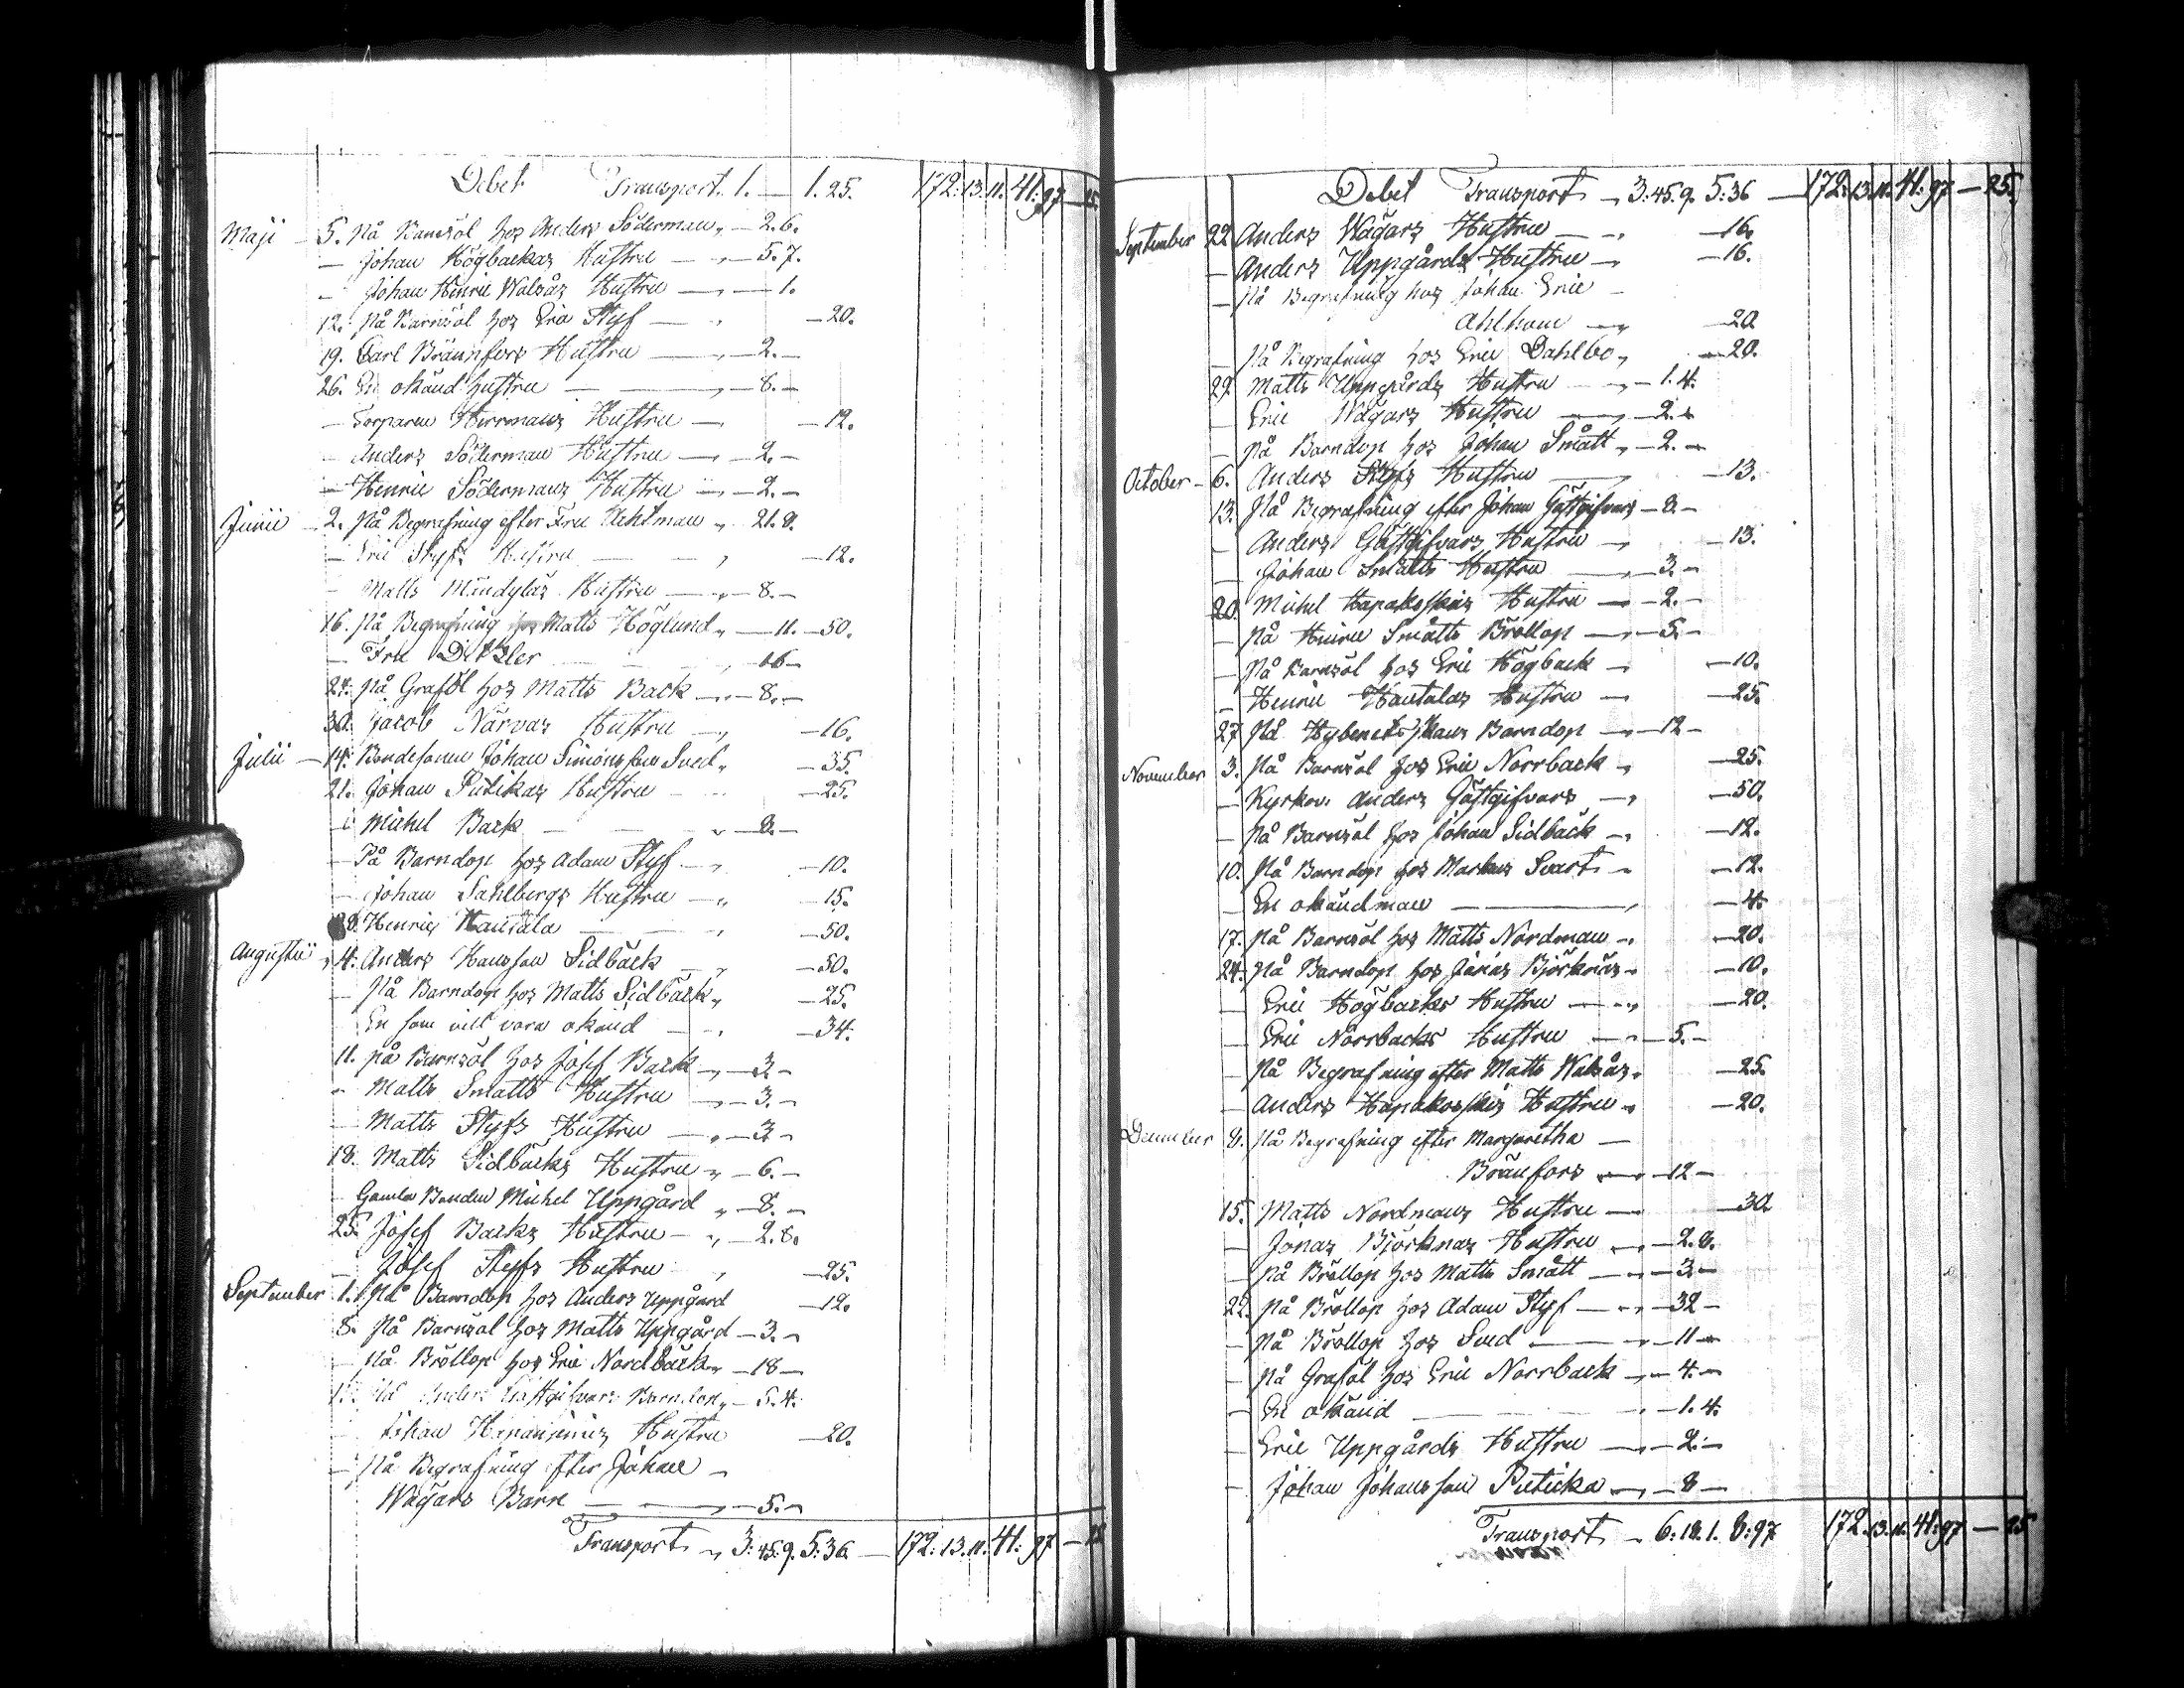 Debet Transport. 1. — 1. 25. 172: 13. 11. 41: 97 — 25.
Maji — 5. På Barnsöl hos Anders Söderman „ — 2. 6.
— Johan Högbackas Hustru — „ — 5. 7.
— Johan Henric Walsås Hustru — „ — 1.
12. på Barnsöl hos Eric Styf — „ — 20.
19. Carl Brännfors Hustru — „ — 2. —
26. En okänd hustru — „ — 8. —
— Torparen Herrmans Hustru — — 12.
— Anders Söderman Hustru — „ — 2. —
— Henric Södermans Hustru — „ — 2. —
Junii — 2. På Begrafning efter Fru Ahlman „ 21. 8.
— Eric Styfs Hustru — „ — 12.
— Matts Hustru — „ — 8. —
16. På Begrafning hos Matts Höglund „ — 11. — 50.
— Fru Ditzler „ 16 —
24. På Graföl hos Matts Back — „ — 8. —
30. Jacob Närvas Hustru — „ — 16.
Julii — 14. Bondesonen Johan Simonsson Sved „ — 35.
21. Johan Putikas Hustru — 25.
— Michel Back — „ — 8. —
— På Barndop hos Adam Styf — „ — 10.
— Johan Sahlbergs Hustru — „ — 15.
28. Henric Hautala — „ — 50.
Augustii „ 4. Anders Hansson Sidbäck — „ — 50.
— På Barndop hos Matts Sidbäck „ — 25.
En som vill vara okänd — „ — 34.
11. på Barnsöl hos Josef Back — „ — 3 —
— Matts Smatts Hustru — „ — 3. —
— Matts Styfs Hustru — „ — 3 —
18. Matts Sidbäcks Hustru „ — 6. —
— Gamla Bonden Michel Uppgård „ — 8. —
25. Josef Backs Hustru — „ — 2. 8.
— Josef Styfs Hustru „ — 25.
September 1. På Barndop hos Anders Uppgård — 12.
8. På Barnsöl hos Matts Uppgård — 3. —
— på Bröllop hos Eric Nordbäck „ — 18 —
15. På Anders Gästgifvars Barndop „ — 5. 4.
— Johan Hustru — 20.
— På Begrafning efter Johan —
Wägars Barn — „ — 5. —
Transport „ 3: 45. 9. 5: 36. — 172: 13. 11. 41: 97 — 25
Debet Transport „ 3: 45. 9. 5: 36 — 172: 13. 11. 41: 97 — 25.
September 22 Anders Wägars Hustru — „ — 16.
— Anders Uppgårds Hustru — „ — 16.
— På Begrafning hos Johan Eric —
Ahlholm — „ — 20
— På Begrafning hos Eric Dahlbo „ — 20.
29. Matts Uppgårds Hustru — „ — 1. 4.
— Eric Wägars Hustru — „ — 2. —
— På Barndop hos Johan Smått „ — 2. —
October — 6. Anders Styfs Hustru — — 13.
13. På Begrafning efter Johan Gästgifvars — 8. —
— Anders Gästgifvars Hustru — „ — 13.
— Johan Smatts Hustru — „ — 3. —
20. Michel Hapakoskis Hustru — „ — 2. —
— På Henric Smått's Bröllop — „ — 5. —
— På Barnsöl hos Eric Högback — „ — 10.
— Henric Hautalas Hustru — „ — 25.
27. På Barndop — „ — 12 —
November 3. På Barnsöl hos Eric Norrback „ — 25.
— Kyrkov. Anders Gästgifvars — „ — 50.
— På Barnsöl hos Johan Sidbäck — „ — 12.
10. På Barndop hos Markus Svart — — 12.
— En okänd man — „ — 4.
17. På Barnsöl hos Matts Nordman — „ — 20.
24. På Barndop hos Jonas Björknäs „ — 10.
— Eric Högbacks Hustru — „ — 20.
— Eric Norrbacks Hustru — „ — 5. —
— På Begrafning efter Matts Walsås „ — 25.
— Anders Hapakoskis Hustru „ — 20.
December 8. På Begrafning efter Margaretha —
Bränfors — „ — 12 —
15. Matts Nordmans Hustru — — 30.
— Jonas Björknas Hustru — „ — 2. 8.
— På Bröllop hos Matts Smått — „ — 3 —
22. På Bröllop hos Adam Styf — „ — 32 —
— På Bröllop hos Sved — „ — 11 —
— På Graföl hos Eric Norrback „ — 4. —
— En okänd — „ — 1. 4.
— Eric Uppgårds Hustru — „ — 2. —
— Johan Johansson Puticka — „ — 8 —
Transport — 6: 18. 1. 8: 97 172. 13. 11. 41: 97 — 25